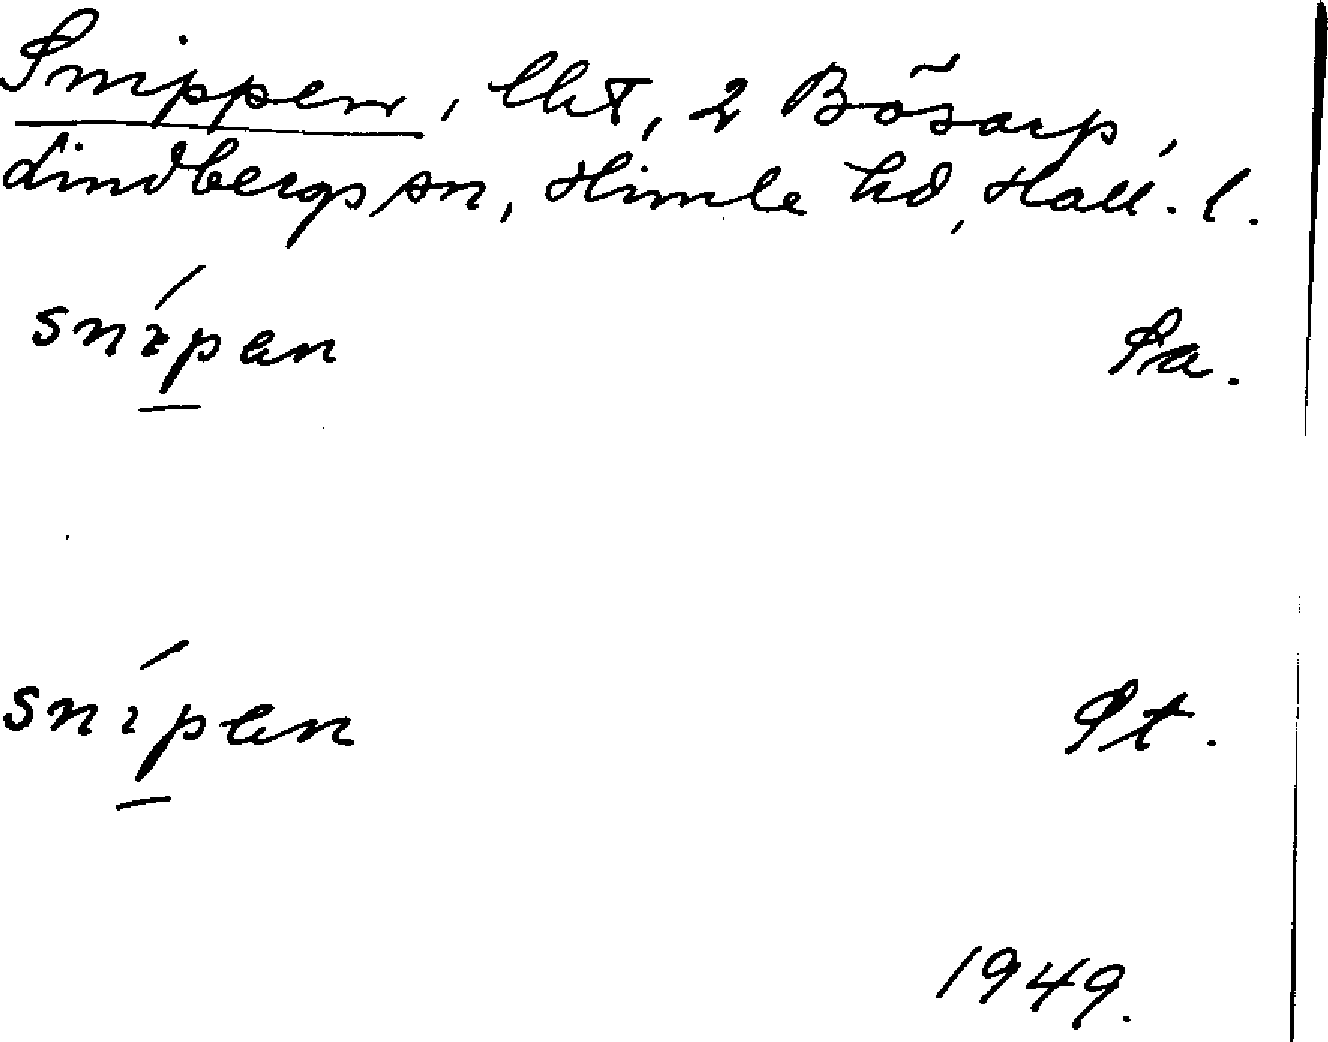 Snippen, lht, 2 Bösarp,
Lindbergs sn, Himle hd, Hall. l.
snípen Pa.
snípen Pt.
1949.